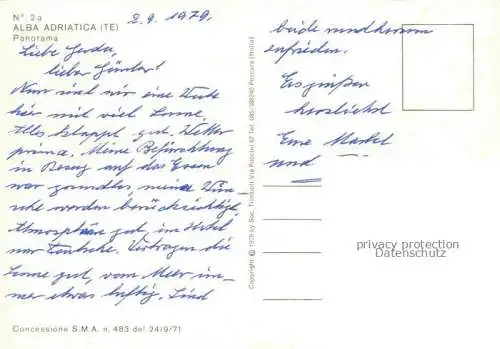 N° 2a
ALBA ADRIATICA (TE)
Panorama
2.9. 1979.
Liebe Gerda,
lieber Günter!
Nun sind wir eine Woche
hier mit viel Sonne,
Alles klappt gut. Wetter
prima. Meine Befürchtung
in Bezug auf das Essen
war grundlos, meine Wün-
sche werden berücksichtigt,
Atmosphäre gut, im Hotel
nur Deutsche. Vertragen die
Sonne gut, vom Meer im-
mer etwas luftig. Sind
beide rundherum
zufrieden.
Es grüßen
herzlichst
Eure
und
Concessione S.M.A. n. 483 del 24/9/71
Copyright © 1979 by Soc. Trimboli Via Puccini 67 Tel. 485. 38240 Pescara (Italia)
privacy protection
Datenschutz